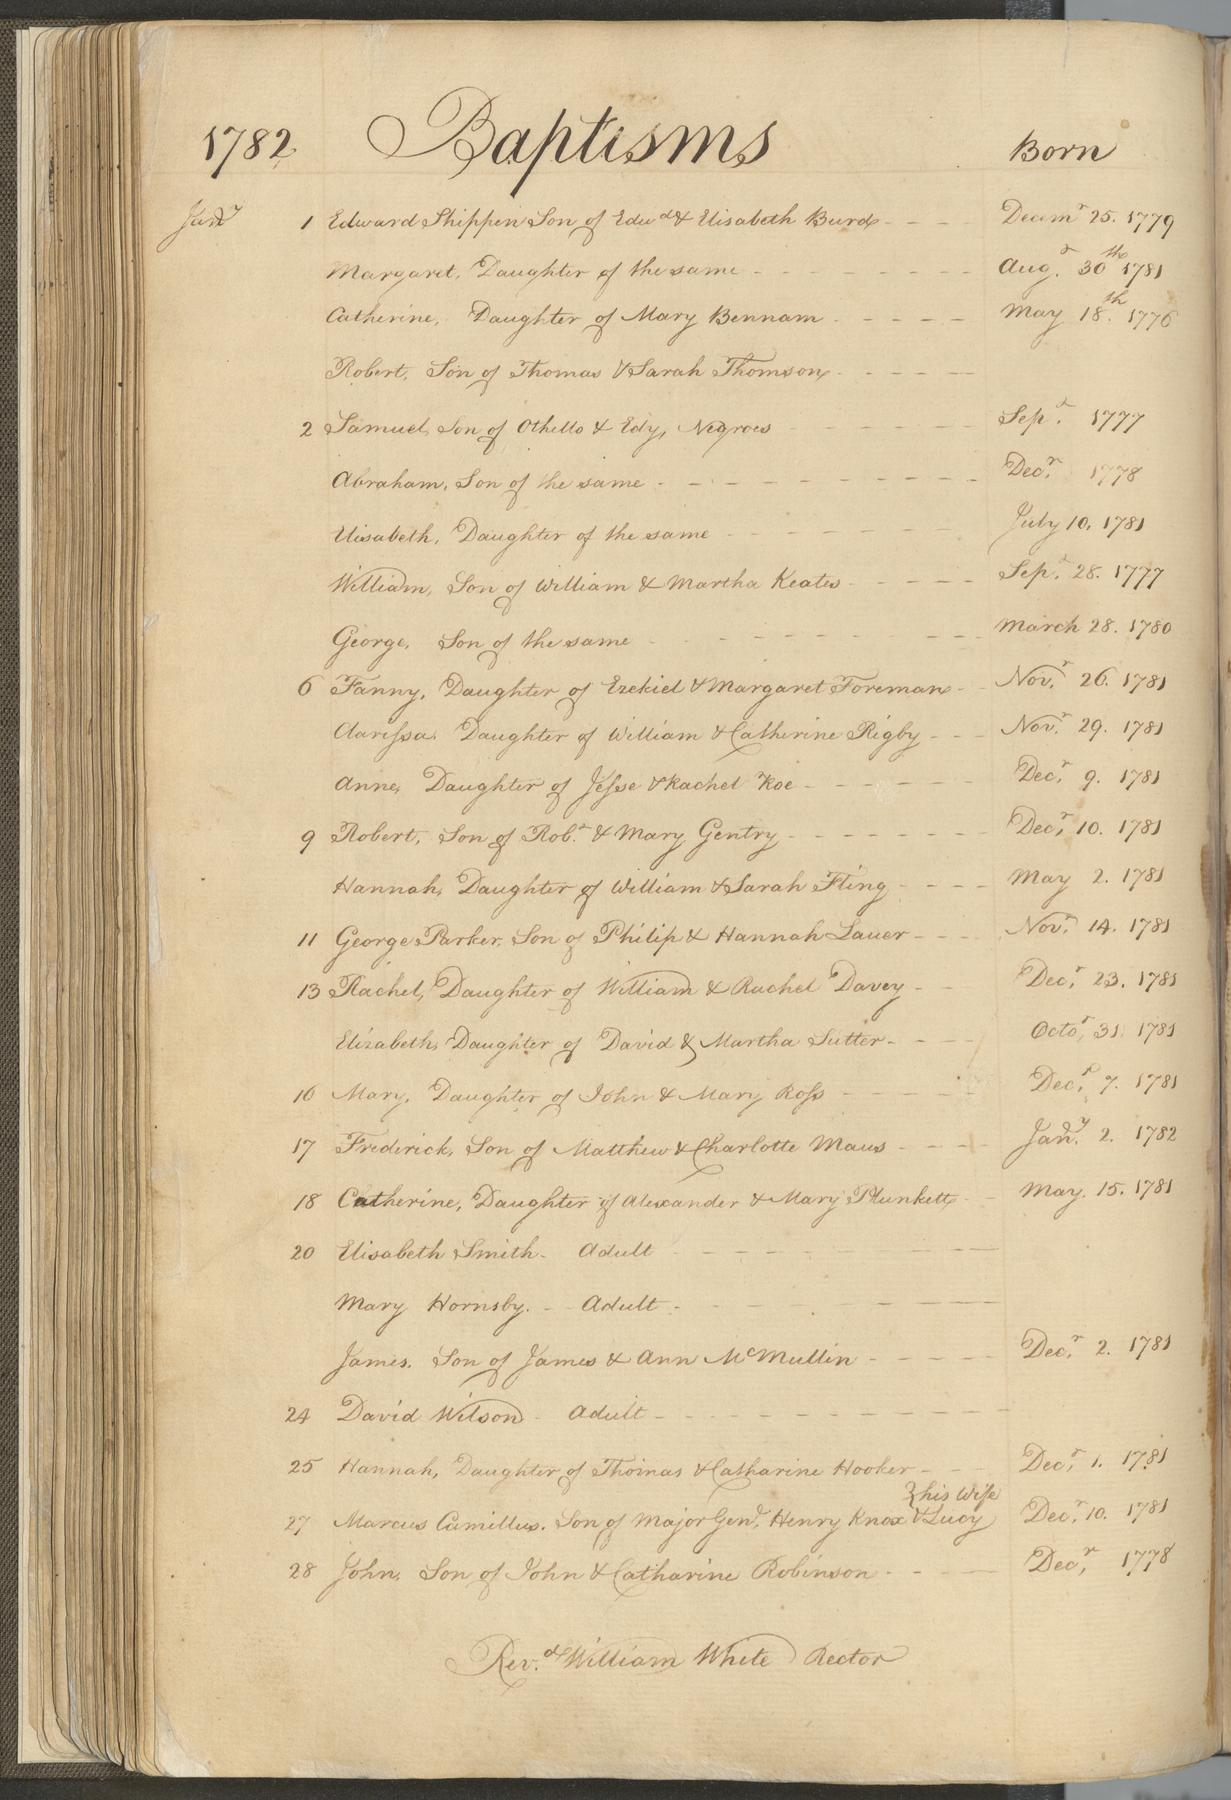 1782 Baptisms Born
Jany 1 Edward Shippen Son of Edwd & Elisabeth Burd Decemr 25. 1779
Margaret, Daughter of the same Augt. 30th 1781
Catherine, Daughter of Mary Bennam May 18th. 1776
Robert, Son of Thomas & Sarah Thomson
2 Samuel, Son of Othello & Edy, Negroes Sept. 1777
Abraham, Son of the same Decr. 1778
Elisabeth, Daughter of the same July 10. 1781
William, Son of William & Martha Keates Sept. 28. 1777
George, Son of the same March 28. 1780
6 Fanny, Daughter of Ezekiel & Margaret Foreman Novr. 26. 1781
Clarissa, Daughter of William & Catherine Rigby Novr. 29. 1781
Anne, Daughter of Jesse & Rachel Roe Decr. 9. 1781
9 Robert, Son of Robt. & Mary Gentry Decr. 10. 1781
Hannah, Daughter of William & Sarah Fling May 2. 1781
11 George Parker, Son of Philip & Hannah Lauer Novr. 14. 1781
13 Rachel, Daughter of William & Rachel Davey Decr. 23. 1781
Elizabeth, Daughter of David & Martha Sutter Octor. 31. 1781
16 Mary, Daughter of John & Mary Ross Decr. 7. 1781
17 Frederick, Son of Matthew & Charlotte Maus Jany. 2. 1782
18 Catherine, Daughter of Alexander & Mary Plunkett May. 15. 1781
20 Elisabeth Smith - Adult
Mary Hornsby. - Adult
James. Son of James & Ann McMullin Decr. 2. 1781
24 David Wilson - Adult
25 Hannah, Daughter of Thomas & Catharine Hooker Decr. 1. 1781
his Wife
27 Marcus Camillus. Son of Major Genl. Henry Knox & Lucy Decr. 10. 1781
28 John, Son of John & Catharine Robinson Decr. 1778
Rev.d William White Rector